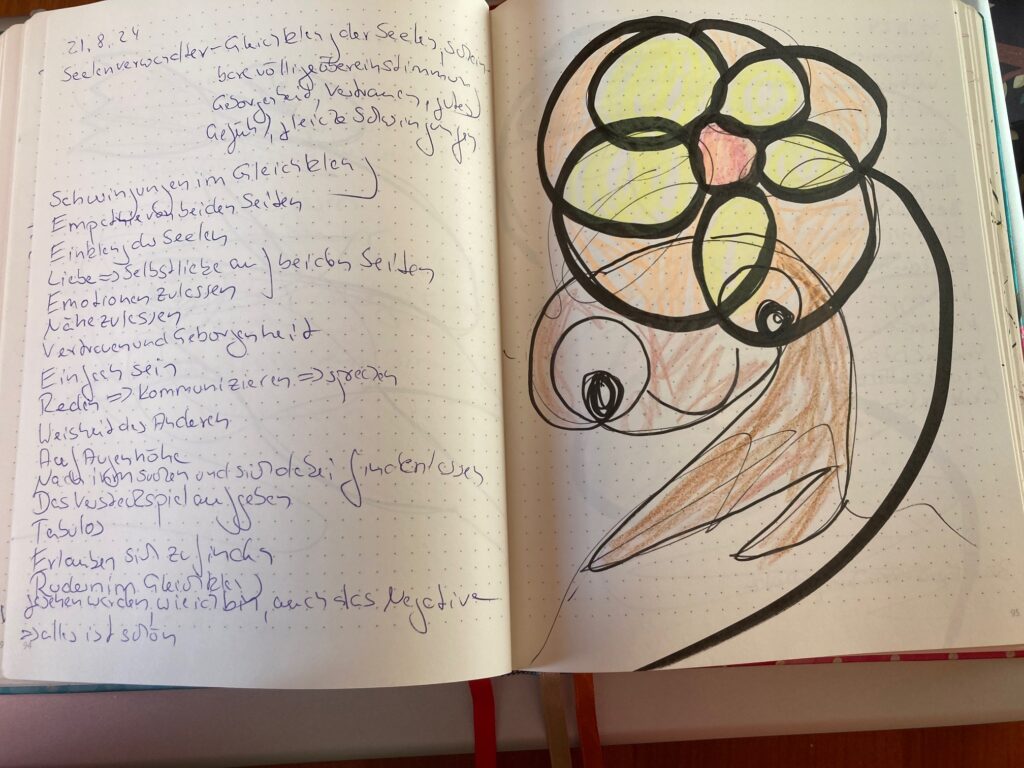 21.8.24
Seelenverwandter-Gleichklang der Seelen, schein-
bare völlige Übereinstimmun
Geborgenheit, Vertrauen, gutes
Gefühl, gleiche Schwingungen
Schwingungen im Gleichklang
Empathie von beiden Seiten
Einklang der Seelen
Liebe => Selbstliebe auf beiden Seiten
Emotionen zulassen
Nähe zulassen
Vertrauen und Geborgenheit
Einfach sein
Reden => Kommunizieren => sprechen
Weisheit des Anderen
Auf Augenhöhe
Nach ihm suchen und sich dabei finden lassen
Das Versteckspiel aufgeben
Tabulos
Erlauben sich zu finden
Rudern im Gleichklang
gesehen werden, wie ich bin, auch das Negative
=> alles ist schön
94
95